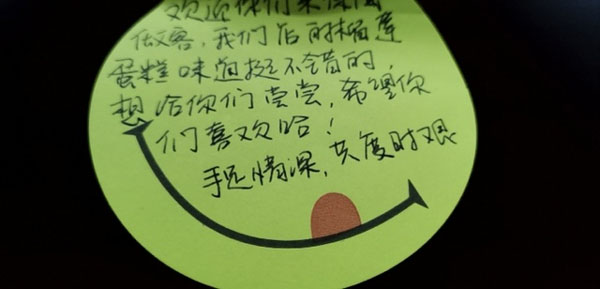 欢迎你们来
做客,我们店的榴莲
蛋糕味道挺不错的,
想给你们尝尝,希望你
们喜欢哈!
手足情深,共度时艰